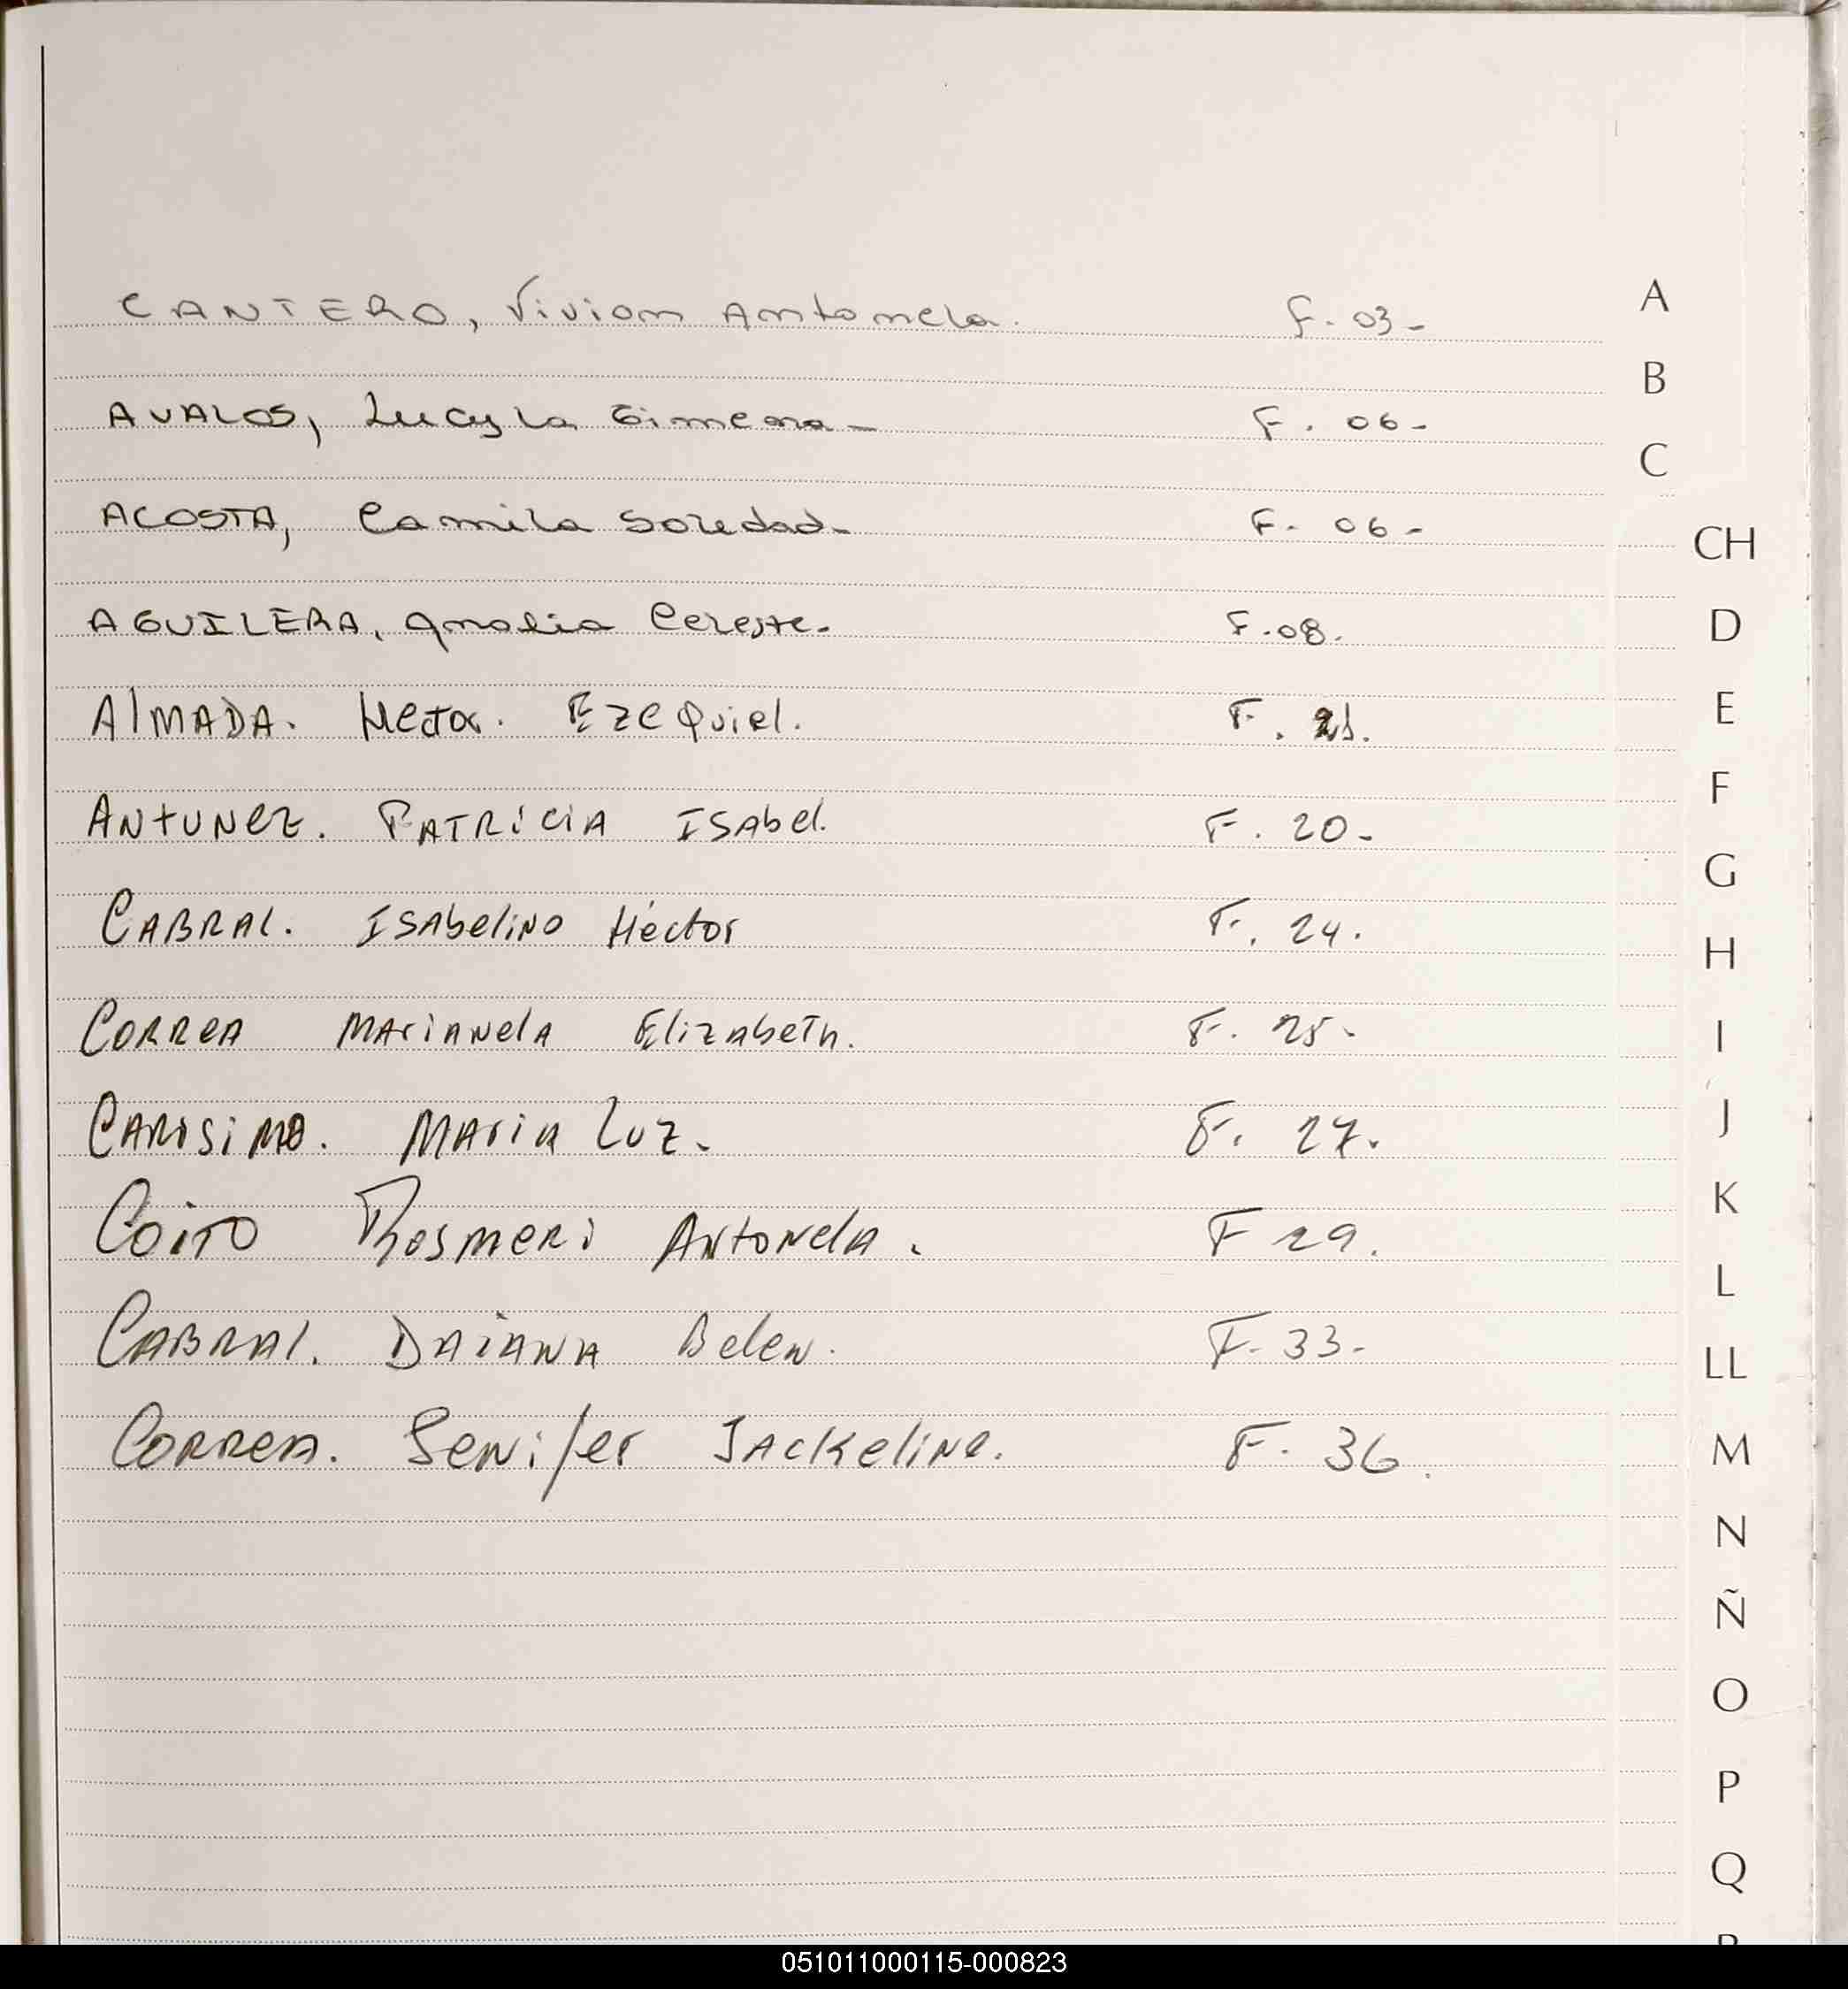 CANTERO, Vivian Antonela. F. 03-
A
B
AVALOS, Lucyla Gimena- F. 06-
C
ACOSTA, Camila Soledad- F. 06-
CH
AGUILERA, Analia Celeste. F.08.
D
ALMADA. Hector. EZEQuiel. F. 21.
E
F
ANtUNez. PATRiCiA ISAbel. F. 20-
G
CABRAL. ISAbeliNO Héctor F. 24.
H
CORReA MAriANelA ElizAbeTh. F. 25-
I
CARISiMO. MAria Luz. F. 27.
J
K
COiTO ROSMERi ANtONelA. F 29.
L
CABRAl. DAiANA Belen. F. 33-
LL
CORReA. Senifer JAckeliNe. F. 36.
M
N
Ñ
O
P
Q
051011000115-000823